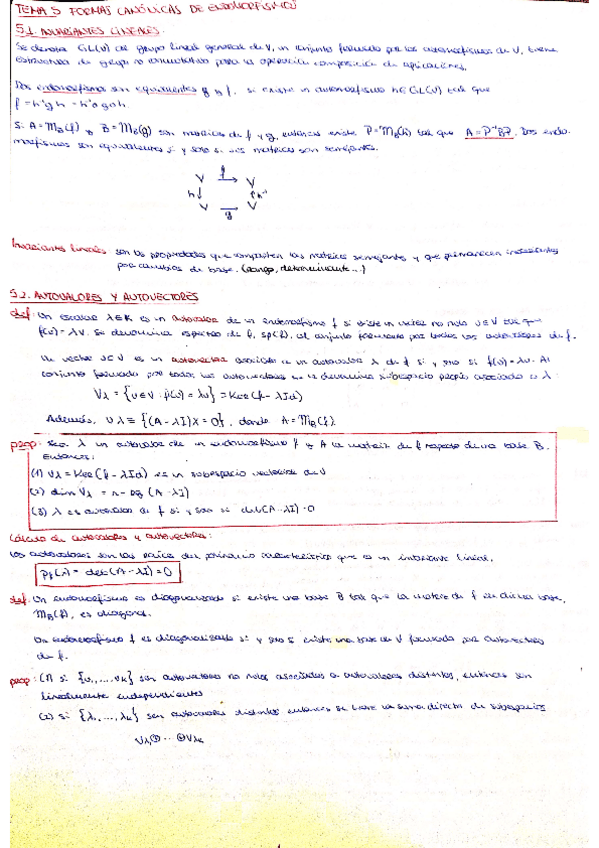 TEMA 5 FORMAS CANÓNICAS DE ENDOMORFISMOS
5.1. INVARIANTES LINEALES.
Se denota GL(V) al grupo lineal general de V, un conjunto formado por los automorfismos de V, tiene
estructura de grupo no conmutativo para la operación composición de aplicaciones.
Dos endomorfismos son equivalentes g y f, si existe un automorfismo h∈GL(V) tal que
f = h⁻¹gh = h⁻¹∘g∘h.
Si A = M_B(f) y B = M_B(g) son matrices de f y g, entonces existe P = M_B(h) tal que A = P⁻¹BP. Dos endo-
morfismos son equivalentes si y solo si sus matrices son semejantes.
V f V
h h⁻¹
V g V
Invariantes lineales son las propiedades que comparten las matrices semejantes y que permanecen
por cambios de base. (rango, determinante...)
5.2. AUTOVALORES Y AUTOVECTORES
def: Un escalar λ∈K es un autovalor de un endomorfismo f si existe un vector no nulo v∈V tal que
f(v) = λv. Se denomina espectro de f, sp(f), al conjunto formado por todos los autovalores de f.
Un vector v∈V es un autovector asociado a un autovalor λ de f si y solo si f(v) = λv. Al
conjunto formado por todos los autovectores se denomina subespacio propio asociado a λ:
V_λ = {v∈V : f(v) = λv} = Ker(f - λId)
Además, V_λ ≡ {(A - λI)X = 0}, donde A = M_B(f).
prop: Sea λ un autovalor de un endomorfismo f y A la matriz de f respecto de una base B.
Entonces:
(1) V_λ = Ker(f - λId) es un subespacio vectorial de V
(2) dim V_λ = n - rg (A - λI)
(3) λ es autovalor de f si y solo si det(A - λI) = 0
Cálculo de autovalores y autovectores:
Los autovalores son las raíces del polinomio característico que es un invariante lineal.
p_f(λ) = det(A - λI) = 0
def: Un endomorfismo es diagonalizable si existe una base B tal que la matriz de f en dicha base,
M_B(f), es diagonal.
Un endomorfismo f es diagonalizable si y solo si existe una base de V formada por autovectores
de f.
prop: (1) Si {v₁, ..., v_k} son autovectores no nulos asociados a autovalores distintos, entonces son
linealmente independientes
(2) Si {λ₁, ..., λ_k} son autovalores distintos entonces se tiene la suma directa de subespacios
V_λ₁⊕ ... ⊕V_λk